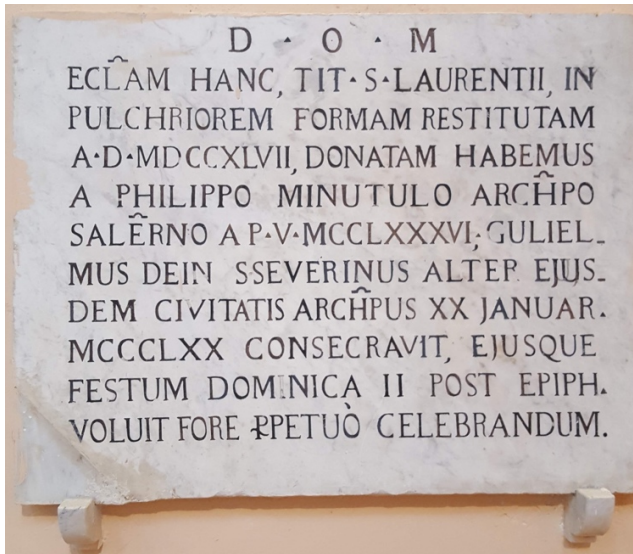 D · O · M
ECL̑AM HANC, TIT·S·LAURENTII, IN
PULCHRIOREM FORMAM RESTITUTAM
A·D·MDCCXLVII, DONATAM HABEMUS
A PHILIPPO MINUTULO ARCH̑PO
SALȆRNO A P·V·MCCLXXXVI; GULIEL-
MUS DEIN SSEVERINUS ALTER EJUS-
DEM CIVITATIS ARCH̑PUS XX JANUAR.
MCCCLXX CONSECRAVIT, EJUSQUE
FESTUM DOMINICA II POST EPIPH.
VOLUIT FORE ꝐPETUÒ CELEBRANDUM.